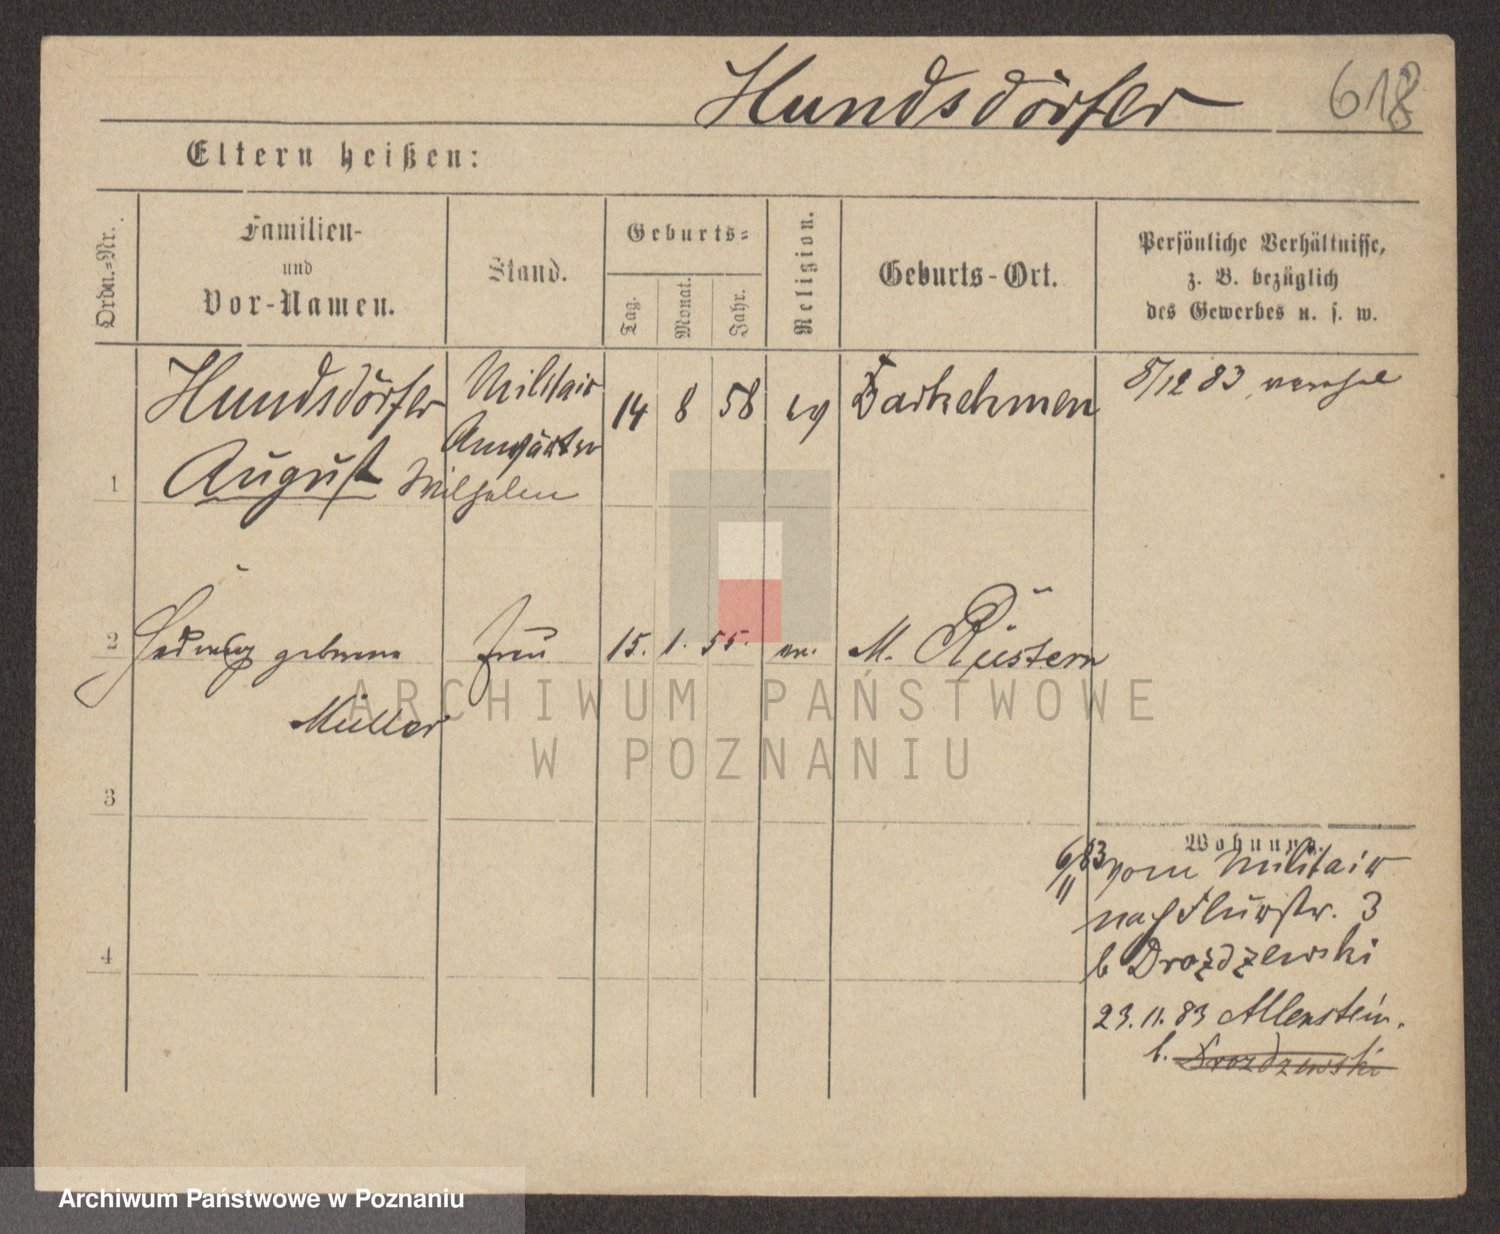 Hundsdörfer
618
Eltern heißen:
Ordn.-Nr.
Familien-
und
Vor-Namen.
Stand.
Geburts-
Tag.
Monat.
Jahr.
Religion.
Geburts-Ort.
Persönliche Verhältnisse,
z. B. bezüglich
des Gewerbes u. s. w.
1
Hundsdörfer
August Wilhelm
Militair
Anwärter
14 8 58
Darkehmen
8/12 83
2
Hedwig geborene
Müller
Frau
15. 1. 55.
M. Rüstern
ARCHIWUM PAŃSTWOWE
W POZNANIU
3
4
Wohnung.
6/11 83 vom Militair
nach Flurstr. 3
b Drozdzewski
23.11.83 Allenstein.
b. Drozdzewski
Archiwum Państwowe w Poznaniu